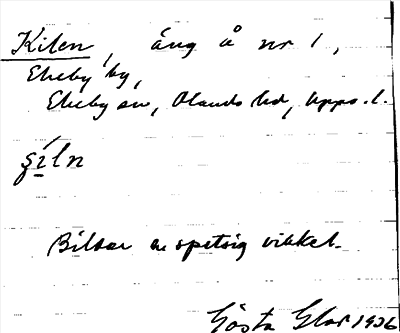 Kilen, äng å nr 1,
Ekeby by,
Ekeby sn, Olands hd, Upps. l.
ꞩíln
Bildar en spetsig vinkel.
Gösta Glas 1936